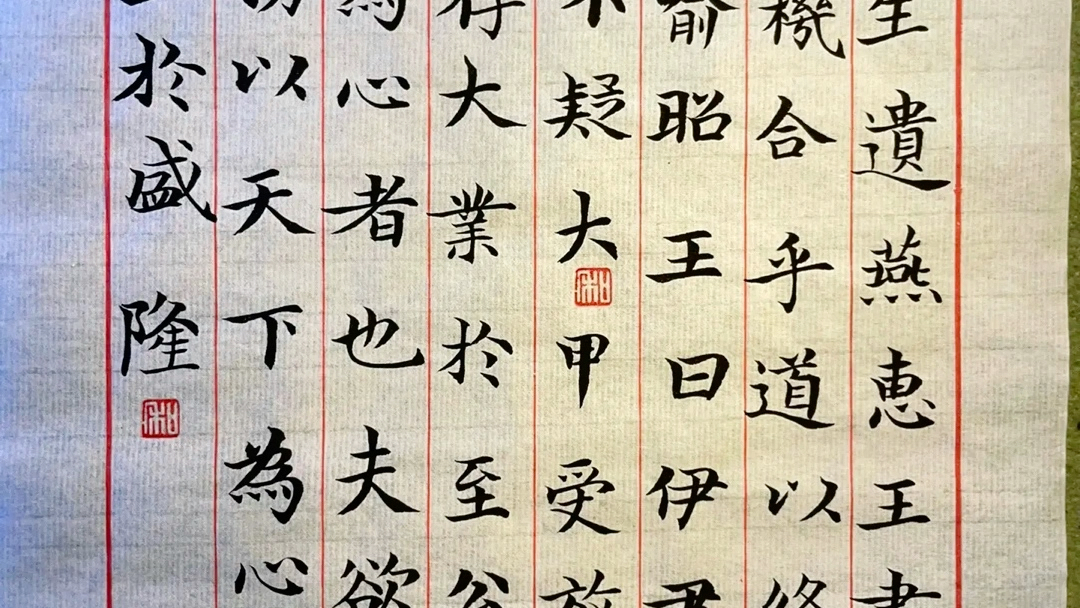 生遺燕惠王書
機合乎道以終
喻昭王曰伊尹
不疑大甲受放
存大業於至公
為心者也夫欲
以天下為心
於盛隆